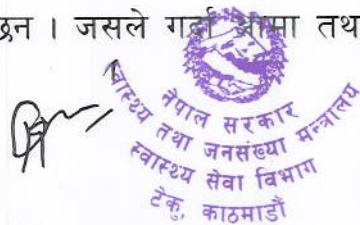 छन । जसले गर्दा आमा तथ
नेपाल सरकार
स्वास्थ्य तथा जनसंख्या मन्त्रालय
स्वास्थ्य सेवा विभाग
टेकु, काठमाडौं